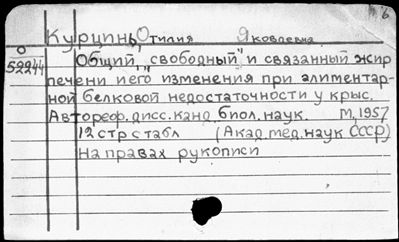 6
Курципь, Отилия Яковлевна
О
52244
Общий, "свободный" и связанный жир
печени и его изменения при алиментар-
ной белковой недостаточности у крыс.
Автореф. дисс. канд. биол. наук. М, 1957
12 стр с табл (Акад. мед. наук СССР)
На правах рукописи